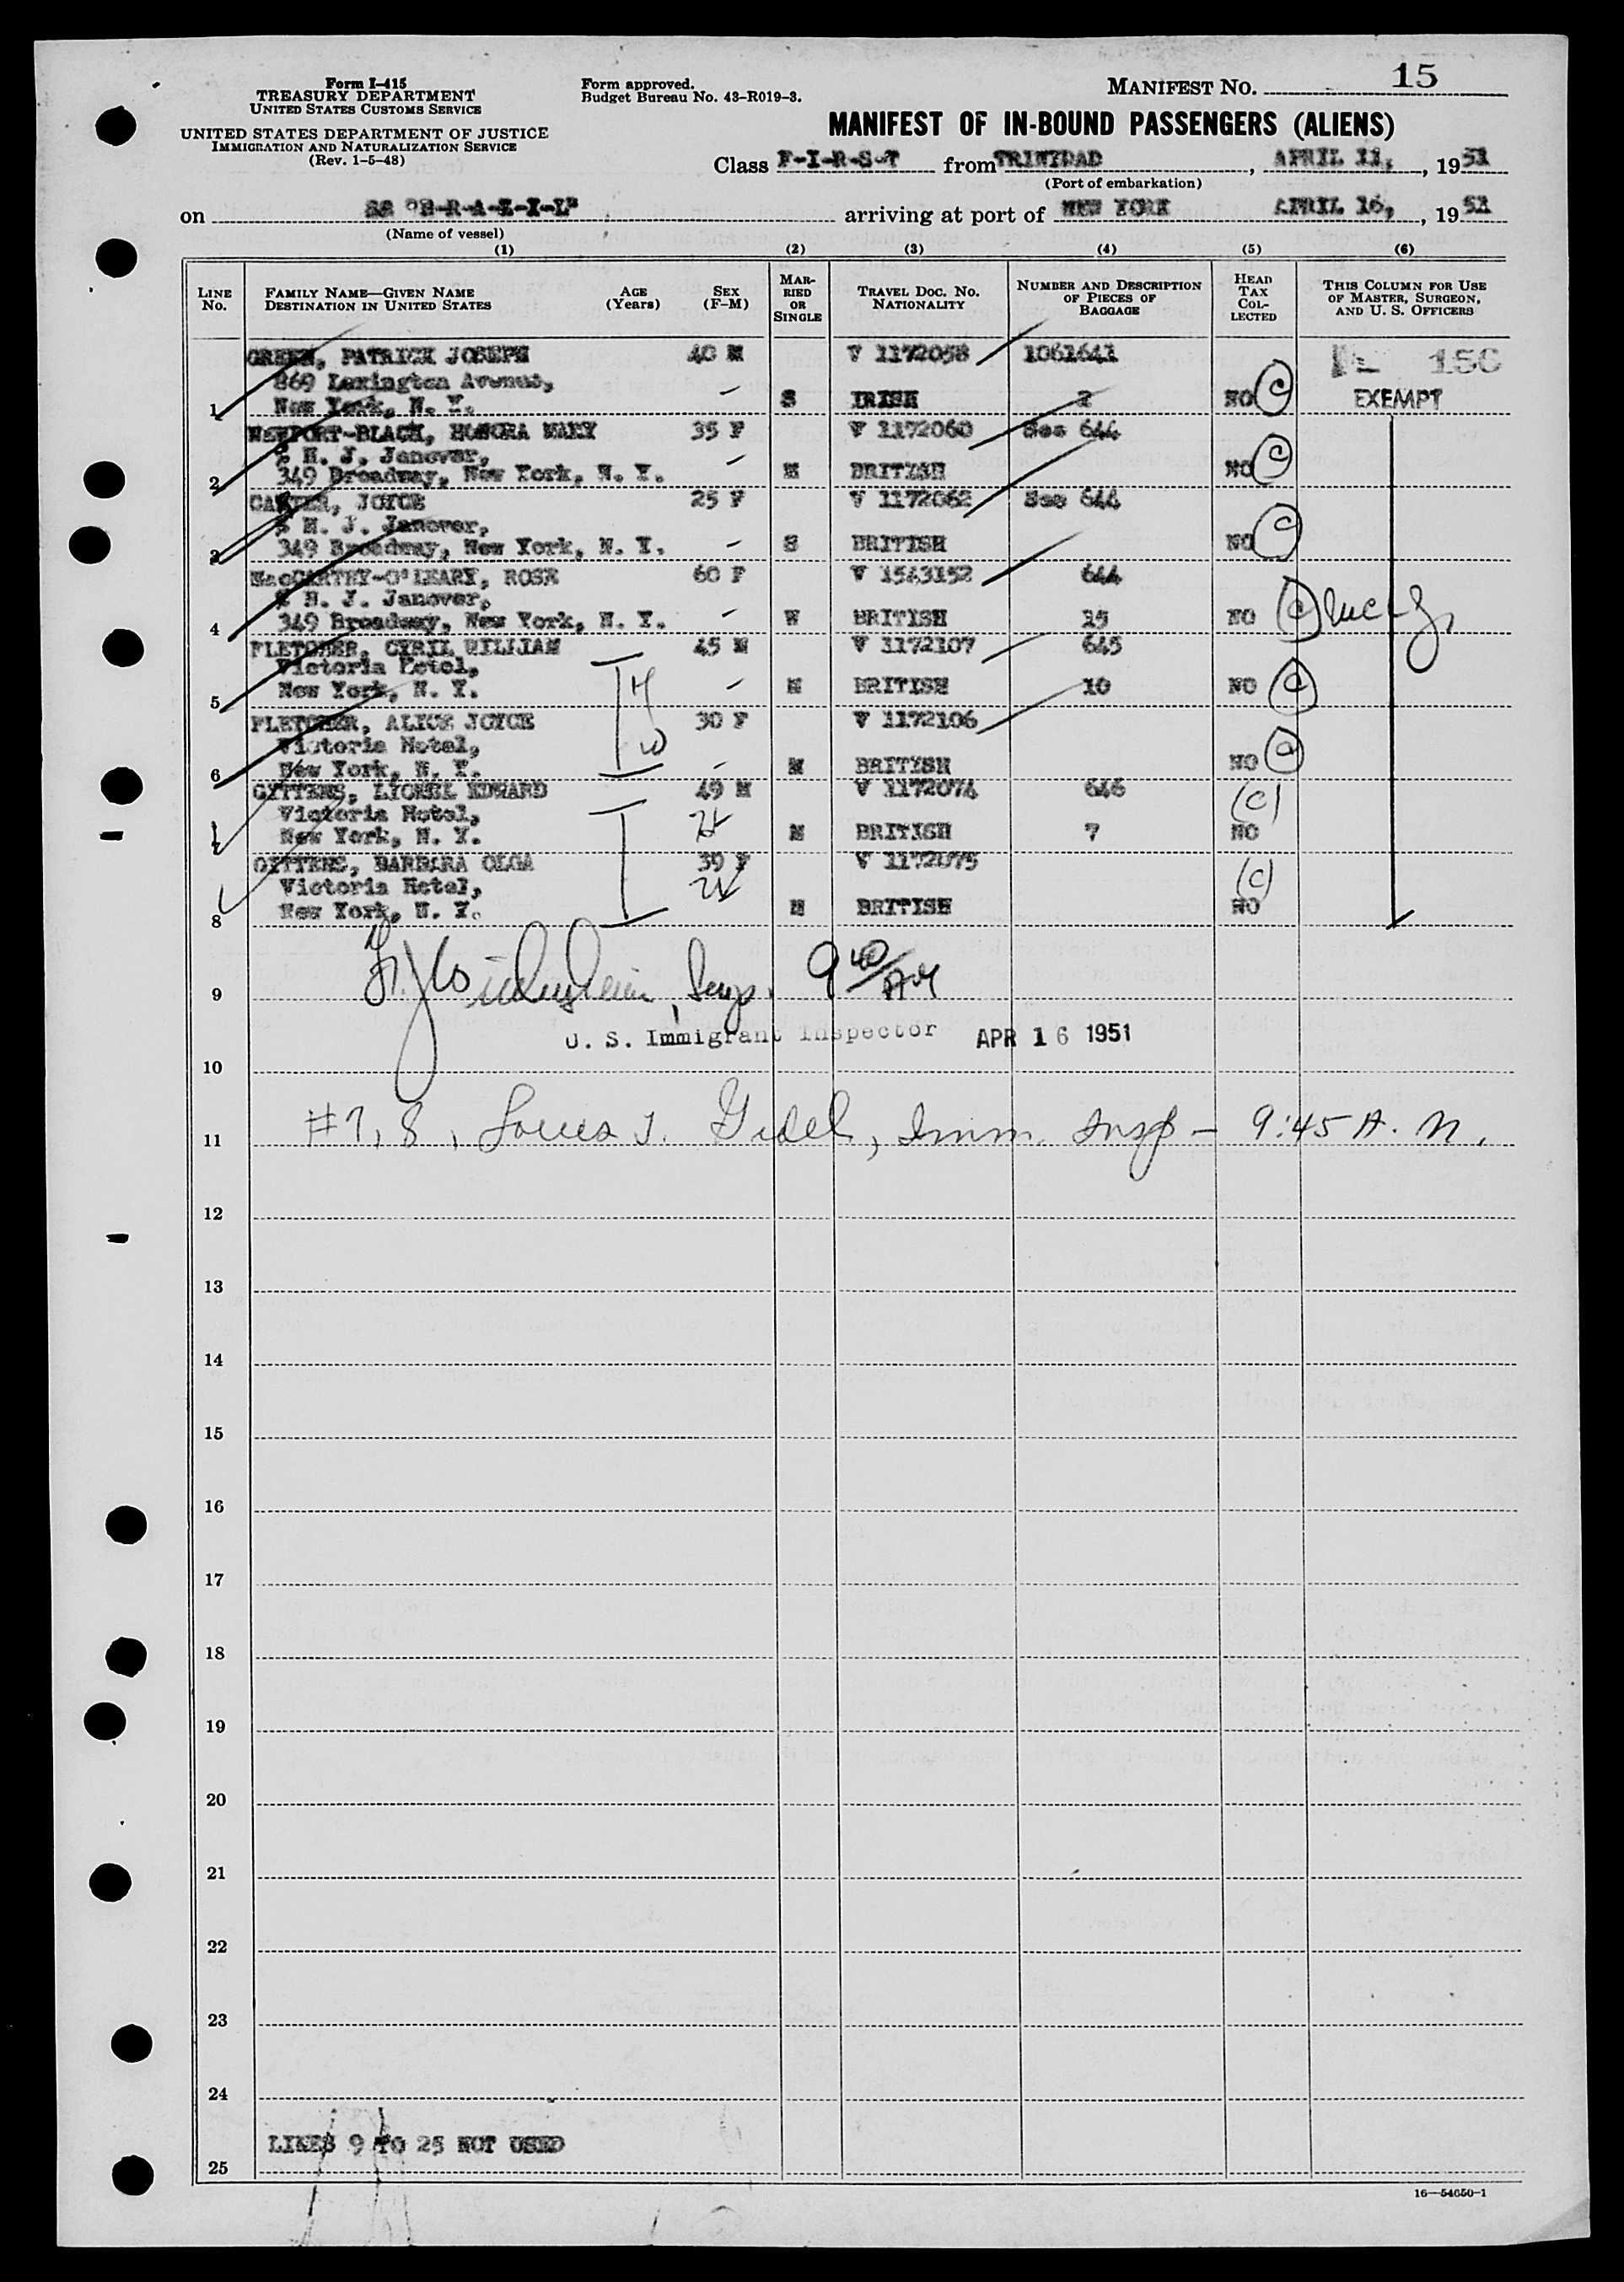 Form I-415
TREASURY DEPARTMENT
UNITED STATES CUSTOMS SERVICE
UNITED STATES DEPARTMENT OF JUSTICE
IMMIGRATION AND NATURALIZATION SERVICE
(Rev. 1-5-48)
Form approved.
Budget Bureau No. 43-R019-3.
MANIFEST NO. 15
MANIFEST OF IN-BOUND PASSENGERS (ALIENS)
Class F-I-R-S-T from TRINIDAD, APRIL 11, 1951
(Port of embarkation)
on SS "B-R-A-Z-I-L" arriving at port of NEW YORK APRIL 16, 1951
(Name of vessel)
(1) (2) (3) (4) (5) (6)
LINE NO. FAMILY NAME—GIVEN NAME DESTINATION IN UNITED STATES AGE (Years) SEX (F-M) MARRIED OR SINGLE TRAVEL DOC. NO. NATIONALITY NUMBER AND DESCRIPTION OF PIECES OF BAGGAGE HEAD TAX COLLECTED THIS COLUMN FOR USE OF MASTER, SURGEON, AND U. S. OFFICERS
GREEN, PATRICK JOSEPH 40 M V 1172058 1061641
869 Lexington Avenue,
1 New York, N. Y. S IRISH 2 NO (C) EXEMPT
NEWPORT-BLACK, HONORA MARY 35 F V 1172060 See 644
% H. J. Janover,
2 349 Broadway, New York, N. Y. M BRITISH NO (C)
CARTER, JOYCE 25 F V 1172062 See 644
% H. J. Janover,
3 349 Broadway, New York, N. Y. S BRITISH NO (C)
MacCARTHY-O'LEARY, ROSE 60 F V 1543152 644
% H. J. Janover,
4 349 Broadway, New York, N. Y. W BRITISH 15 NO (C)
FLETCHER, CYRIL WILLIAM 45 M V 1172107 645
Victoria Hotel,
5 New York, N. Y. M BRITISH 10 NO (C)
FLETCHER, ALICE JOYCE 30 F V 1172106
Victoria Hotel,
6 New York, N. Y. M BRITISH NO (C)
GITTENS, LIONEL EDWARD 49 M V 1172074 646 (C)
Victoria Hotel,
7 New York, N. Y. M BRITISH 7 NO
GITTENS, BARBARA OLGA 39 F V 1172075 (C)
Victoria Hotel,
8 New York, N. Y. M BRITISH NO
9 Insp. 9 40/AM
U. S. Immigrant Inspector APR 16 1951
10
11 #7, 8, Louis J. Gidel, Imm. Insp - 9:45 A. M.
12
13
14
15
16
17
18
19
20
21
22
23
24
LINES 9 TO 25 NOT USED
25
16—54650-1